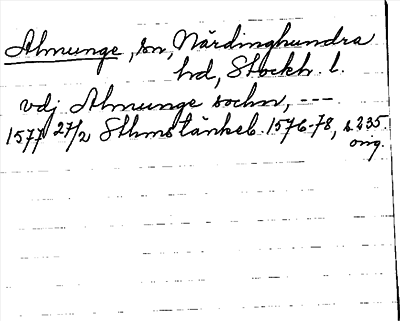 Almunge, sn, Närdinghundra
hd, Stockh. l.
vdj Almunge sochn, ---
1577 27/2 Sthms tänkeb. 1576-78, s. 235.
orig.